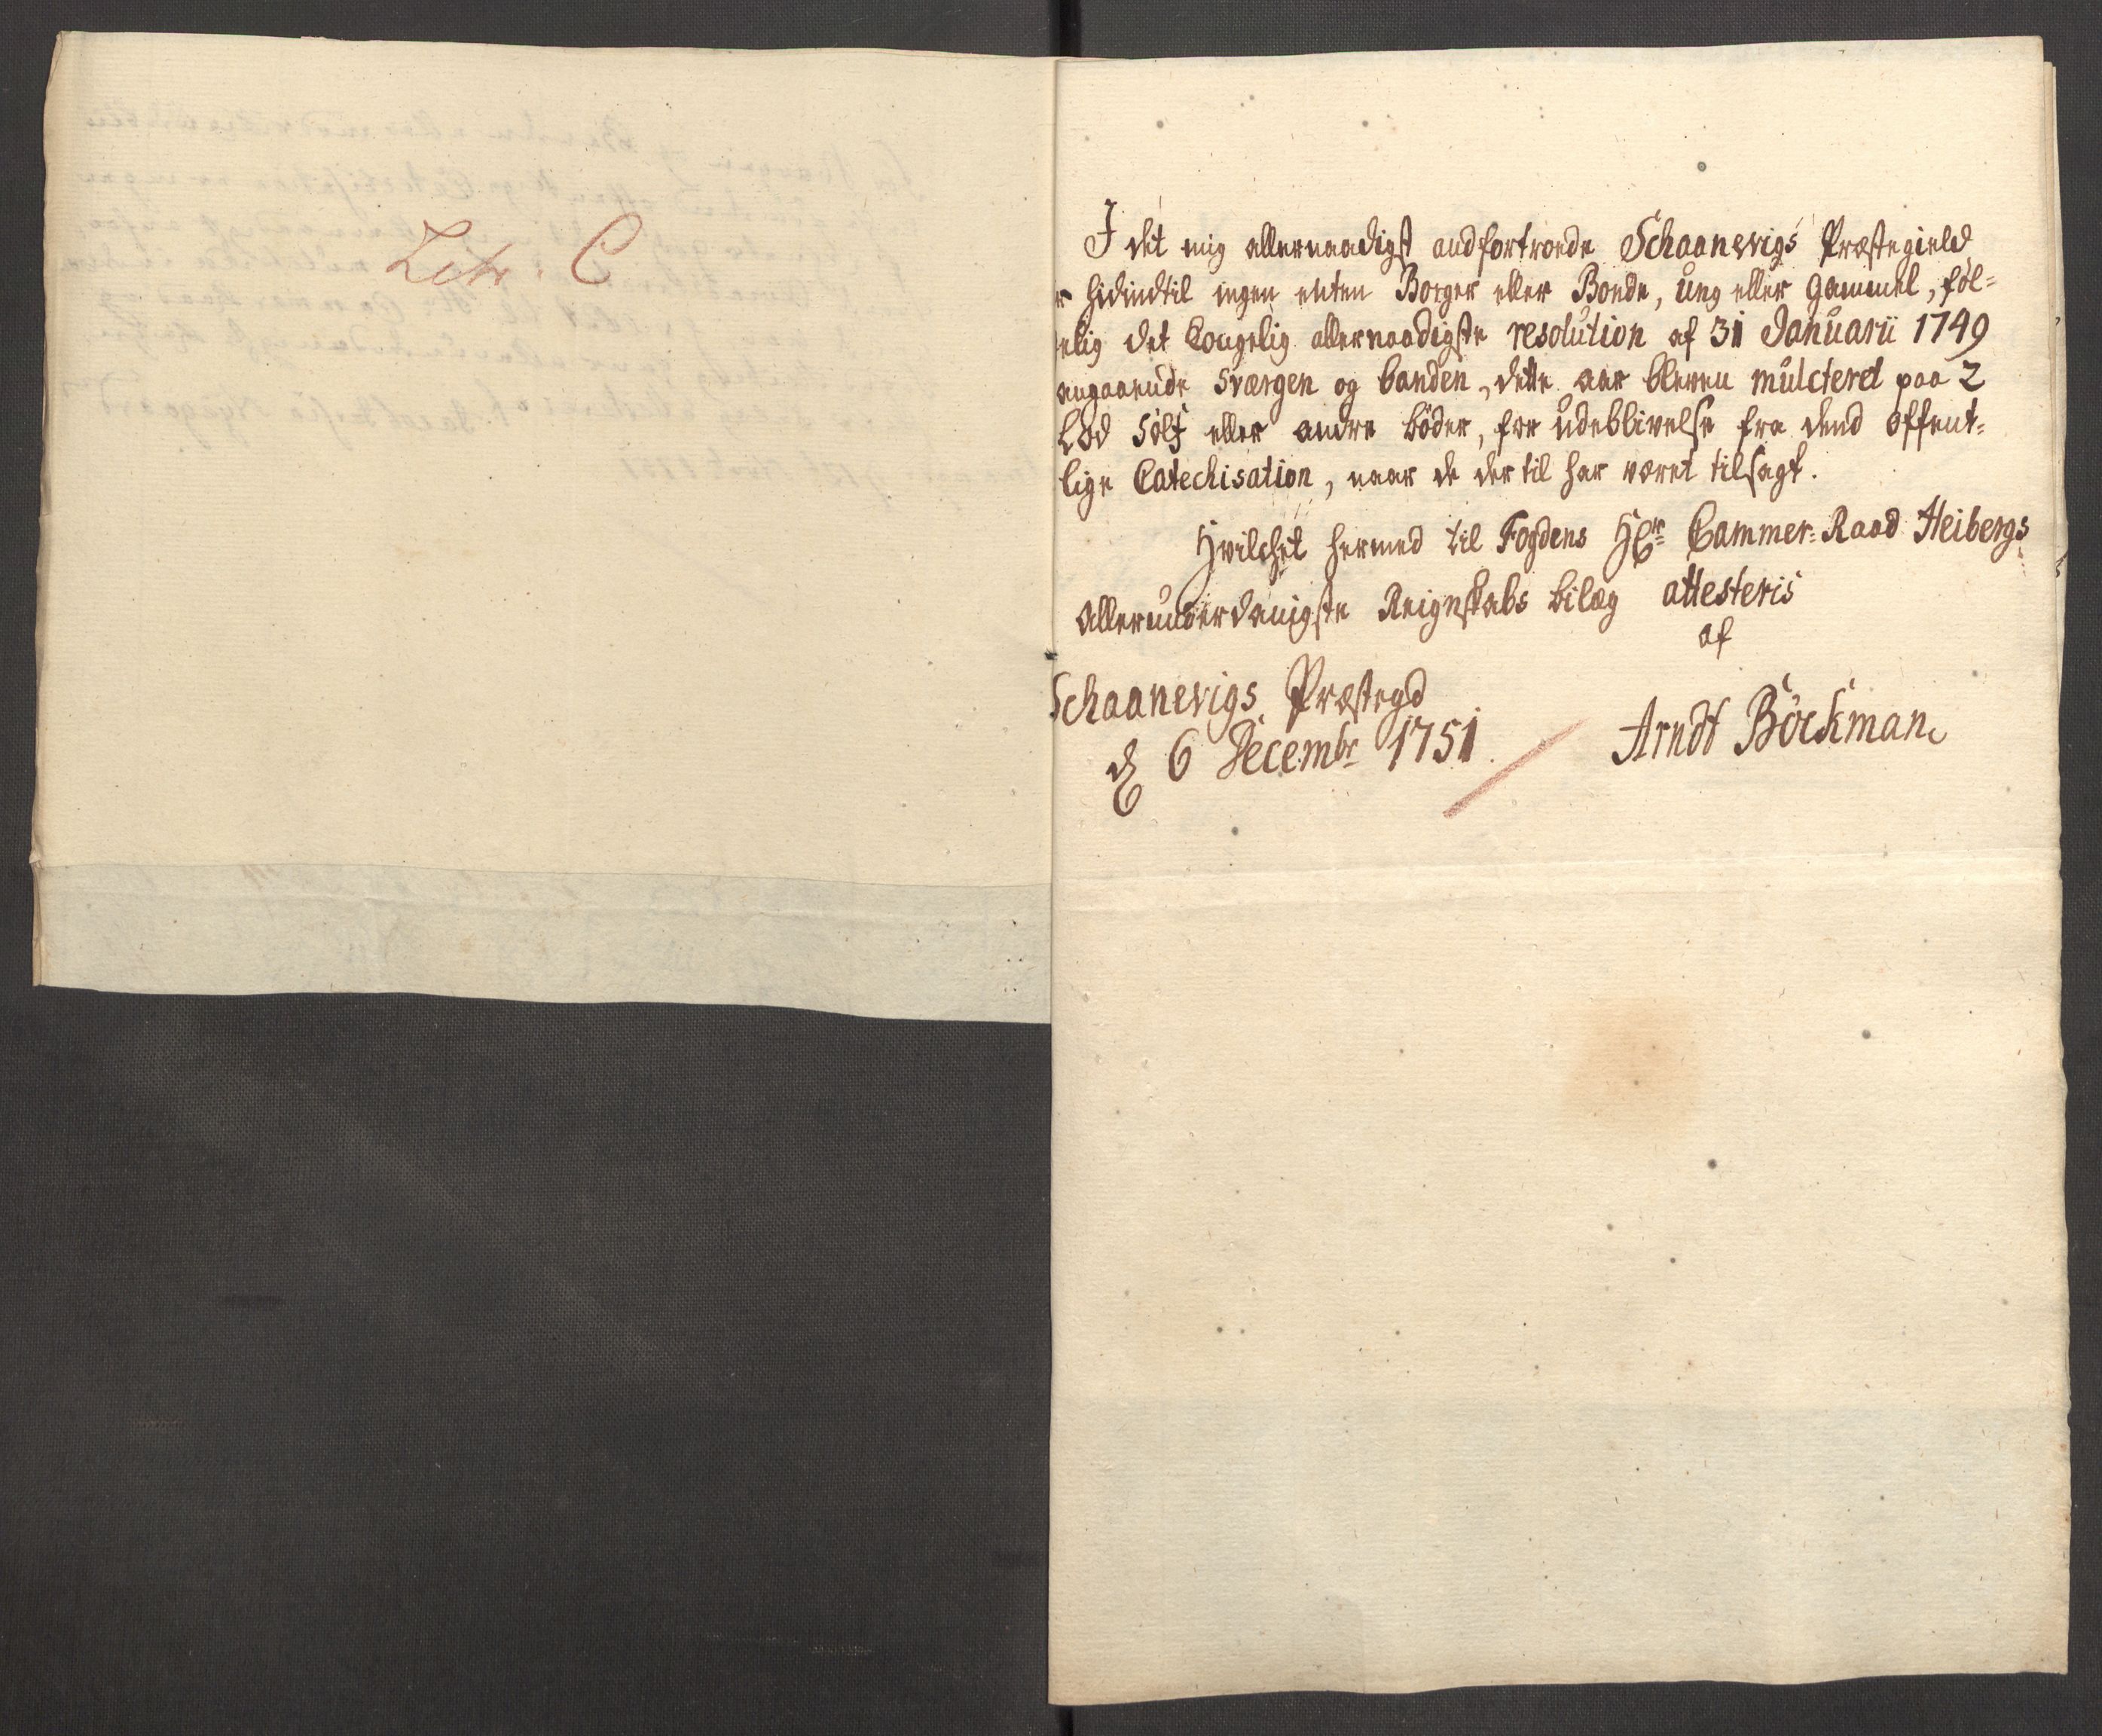 Litr. C
I det mig allernaadigst andfortroede Schaanevigs Præstegield
r hidindtil ingen enten Borger eller Bonde, ung eller Gammel, føl-
elig det Kongelig allernaadigste resolution af 31 Januarii 1749
angaaende sværgen og banden, dette aar bleven mulcteret paa 2
Lod Sølf eller andre bøder, for udeblivelse fra dend offent-
lige Catechisation, naar de der til har været tilsagt.
Hvilchet hermed til Fogdens Hr Cammer-Raad Heibergs
Allerunderdanigste Reignskabs bilæg attesteris
af
Schaanevigs Præstegd
d 6 Decembr 1751.
Arndt Böckman